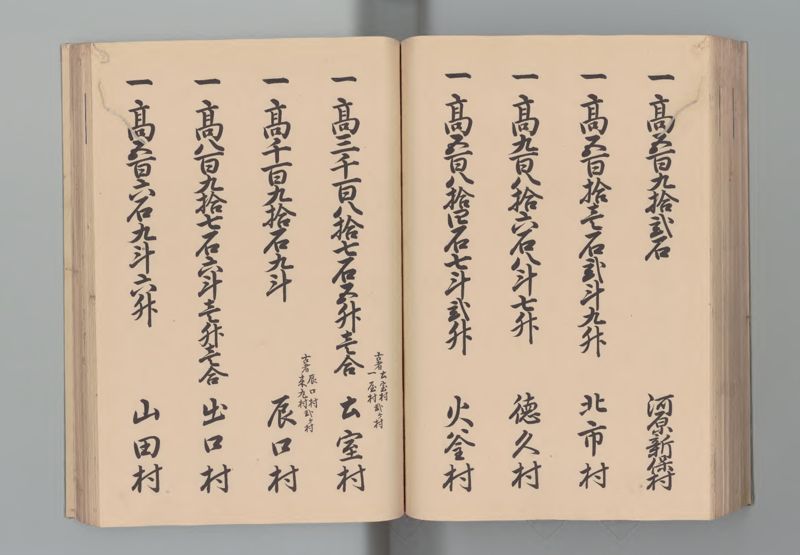 一高五百九拾弐石 河原新保村
一高五百拾壱石弐斗九升 北市村
一高九百八拾六石八斗七升 徳久村
一高五百八拾四石七斗弐升 火釜村
古者土室村 一屋村弐ヶ村
一高三千百八拾七石五升壱合 土室村
古者辰口村 来丸村弐ヶ村
一高千百九拾石九斗 辰口村
一高八百九拾七石六斗壱升壱合 出口村
一高五百六石九斗六升 山田村